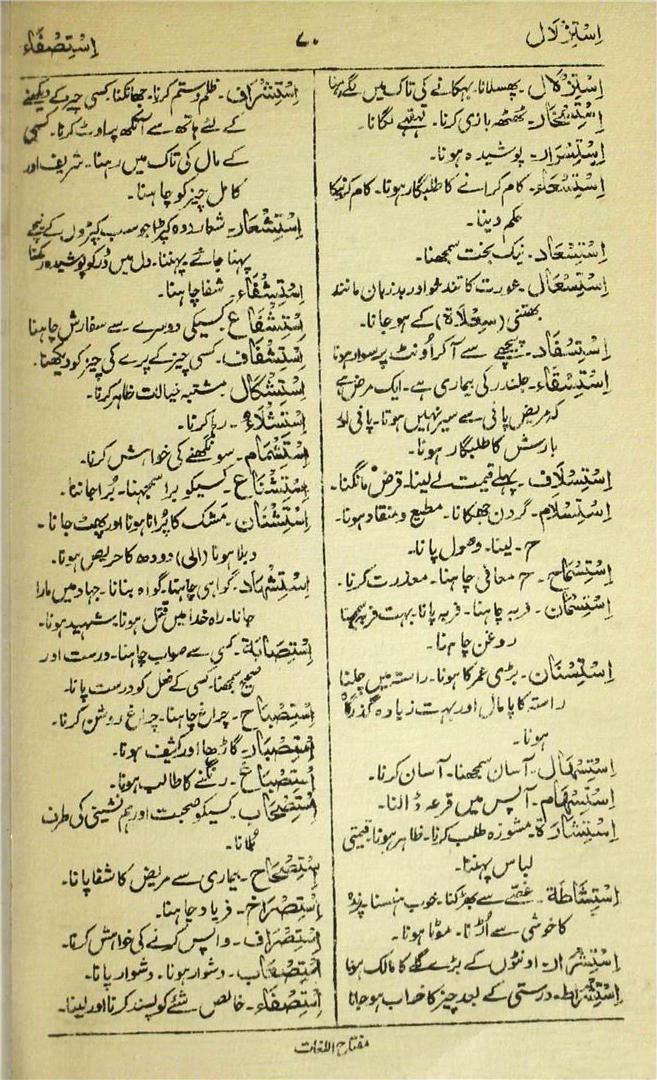 اِسْتِزْلَال
۷۰
اِسْتِصْفَاء
اِسْتِزْلَال۔ پھسلانا۔ بہکانے کی تاک میں لگے رہنا
اِسْتِسْخَار۔ ٹھٹھہ بازی کرنا۔ قہقہے لگانا۔
اِسْتِسْرَار۔ پوشیدہ ہونا۔
اِسْتِسْعَاء۔ کام کرانے کا طلبگار ہونا۔ کام کرنیکا
حکم دینا۔
اِسْتِسْعَاد۔ نیک بخت سمجھنا۔
اِسْتِسْعَال۔ عورت کا تند خو اور بدزبان مانند
بھتنی (سِعْلَاۃ) کے ہو جانا۔
اِسْتِسْفَاد۔ پیچھے سے آکر اُونٹ پر سوار ہونا
اِسْتِسْقَاء۔ جلندر کی بیماری ہے۔ ایک مرض ہے
کہ مریض پانی سے سیر نہیں ہوتا۔ پانی اور
بارش کا طلبگار ہونا۔
اِسْتِسْلَاف۔ پہلے قیمت لے لینا۔ قرض مانگنا۔
اِسْتِسْلَام۔ گردن جھکانا۔ مطیع و منقاد ہونا۔
ح۔ لینا۔ وصول پانا۔
اِسْتِسْمَاح۔ ح معافی چاہنا۔ معذرت کرنا۔
اِسْتِسْمَان۔ فربہ چاہنا۔ فربہ پانا۔ بہت فربہ سمجھنا
روغن چاہنا۔
اِسْتِسْنَان۔ بڑی عمر کا ہونا۔ راستہ میں چلنا
راستہ کا پامال اور بہت زیادہ گذرگاہ
ہونا۔
اِسْتِسْهَال۔ آسان سمجھنا۔ آسان کرنا۔
اِسْتِسْهَام۔ آپس میں قرعہ ڈالنا۔
اِسْتِشَارَة۔ مشورہ طلب کرنا۔ ظاہر ہونا۔ قیمتی
لباس پہننا۔
اِسْتِشَاطَة۔ غصّے سے بھڑکنا۔ خوب ہنسنا۔ پرندہ
کا خوشی سے اُڑنا۔ موٹا ہونا۔
اِسْتِشْرَار۔ اونٹوں کے بڑے گلے کا مالک ہونا
اِسْتِشْرَاط۔ درستی کے بعد چیز کا خراب ہو جانا
اِسْتِشْرَاف۔ ظلم و ستم کرنا۔ جھانکنا۔ کسی چیز کے دیکھنے
کے لئے ہاتھ سے آنکھ پر اوٹ کرنا۔ کسی
کے مال کی تاک میں رہنا۔ شریف اور
کامل چیز کو چاہنا۔
اِسْتِشْعَار۔ شعار (وہ کپڑا جو سب کپڑوں کے نیچے
پہنا جائے) پہننا۔ دل میں ڈر کو پوشیدہ رکھنا
اِسْتِشْفَاء۔ شفا چاہنا۔
اِسْتِشْفَاع۔ کسیکی دوسرے سے سفارش چاہنا
اِسْتِشْفَاف۔ کسی چیز کے پرے کی چیز کو دیکھنا۔
اِسْتِشْكَال۔ مشتبہ خیالات ظاہر کرنا۔
اِسْتِشْلَاء۔ رہا کرنا۔
اِسْتِشْمَام۔ سونگھنے کی خواہش کرنا۔
اِسْتِشْنَاع۔ کسیکو برا سمجھنا۔ بُرا جاننا۔
اِسْتِشْنَان۔ مَشک کا پُرانا ہونا اور پھٹ جانا۔
دبلا ہونا (الی) دودھ کا حریص ہونا۔
اِسْتِشْهَاد۔ گواہی چاہنا۔ گواہ بنانا۔ جہاد میں مارا
جانا۔ راہ خدا میں قتل ہونا۔ شہید ہونا۔
اِسْتِصَابَة۔ کسی سے صواب چاہنا۔ درست اور
صحیح سمجھنا۔ کسی کے فعل کو درست پانا۔
اِسْتِصْبَاح۔ چراغ چاہنا۔ چراغ روشن کرنا۔
اِسْتِصْبَار۔ گاڑھا اور کثیف ہونا۔
اِسْتِصْبَاغ۔ رنگنے کا طالب ہونا۔
اِسْتِصْحَاب۔ کسیکو صحبت اور ہم نشینی کی طرف
بُلانا۔
اِسْتِصْحَاح۔ بیماری سے مریض کا شفا پانا۔
اِسْتِصْرَاخ۔ فریاد چاہنا۔
اِسْتِصْرَاف۔ واپس کرنے کی خواہش کرنا۔
اِسْتِصْعَاب۔ دشوار ہونا۔ دشوار پانا۔
اِسْتِصْفَاء۔ خالص شئے کو پسند کرنا اور لینا۔
مفتاح اللغات